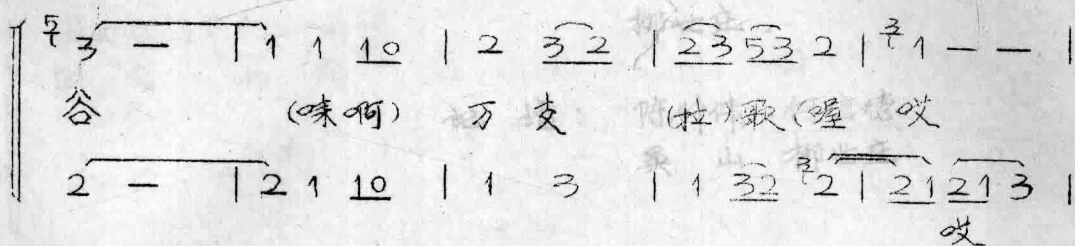 5 3 — | 1 1 10 | 2 3 2 | 23 53 2 | 3 1 — — |
谷 (唻 啊) 万 支 (拉) 歌 (喔 哎
2 — | 2 1 10 | 1 3 | 1 32 3 2 | 21 21 3 |
哎